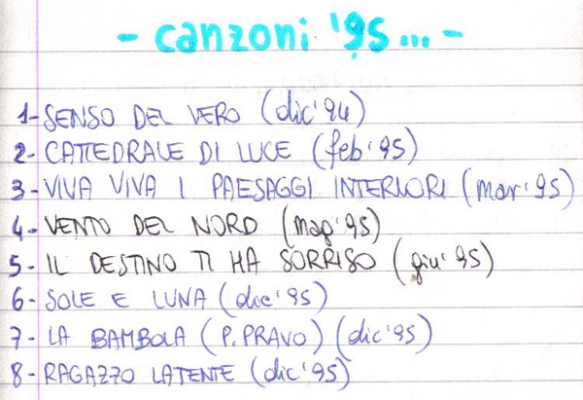 - canzoni '95 ... -
1- SENSO DEL VERO (dic '94)
2- CATTEDRALE DI LUCE (feb '95)
3- VIVA VIVA I PAESAGGI INTERIORI (mar '95)
4- VENTO DEL NORD (mag '95)
5- IL DESTINO TI HA SORRISO (giu' 95)
6- SOLE E LUNA (dic '95)
7- LA BAMBOLA (P. PRAVO) (dic '95)
8- RAGAZZO LATENTE (dic '95)